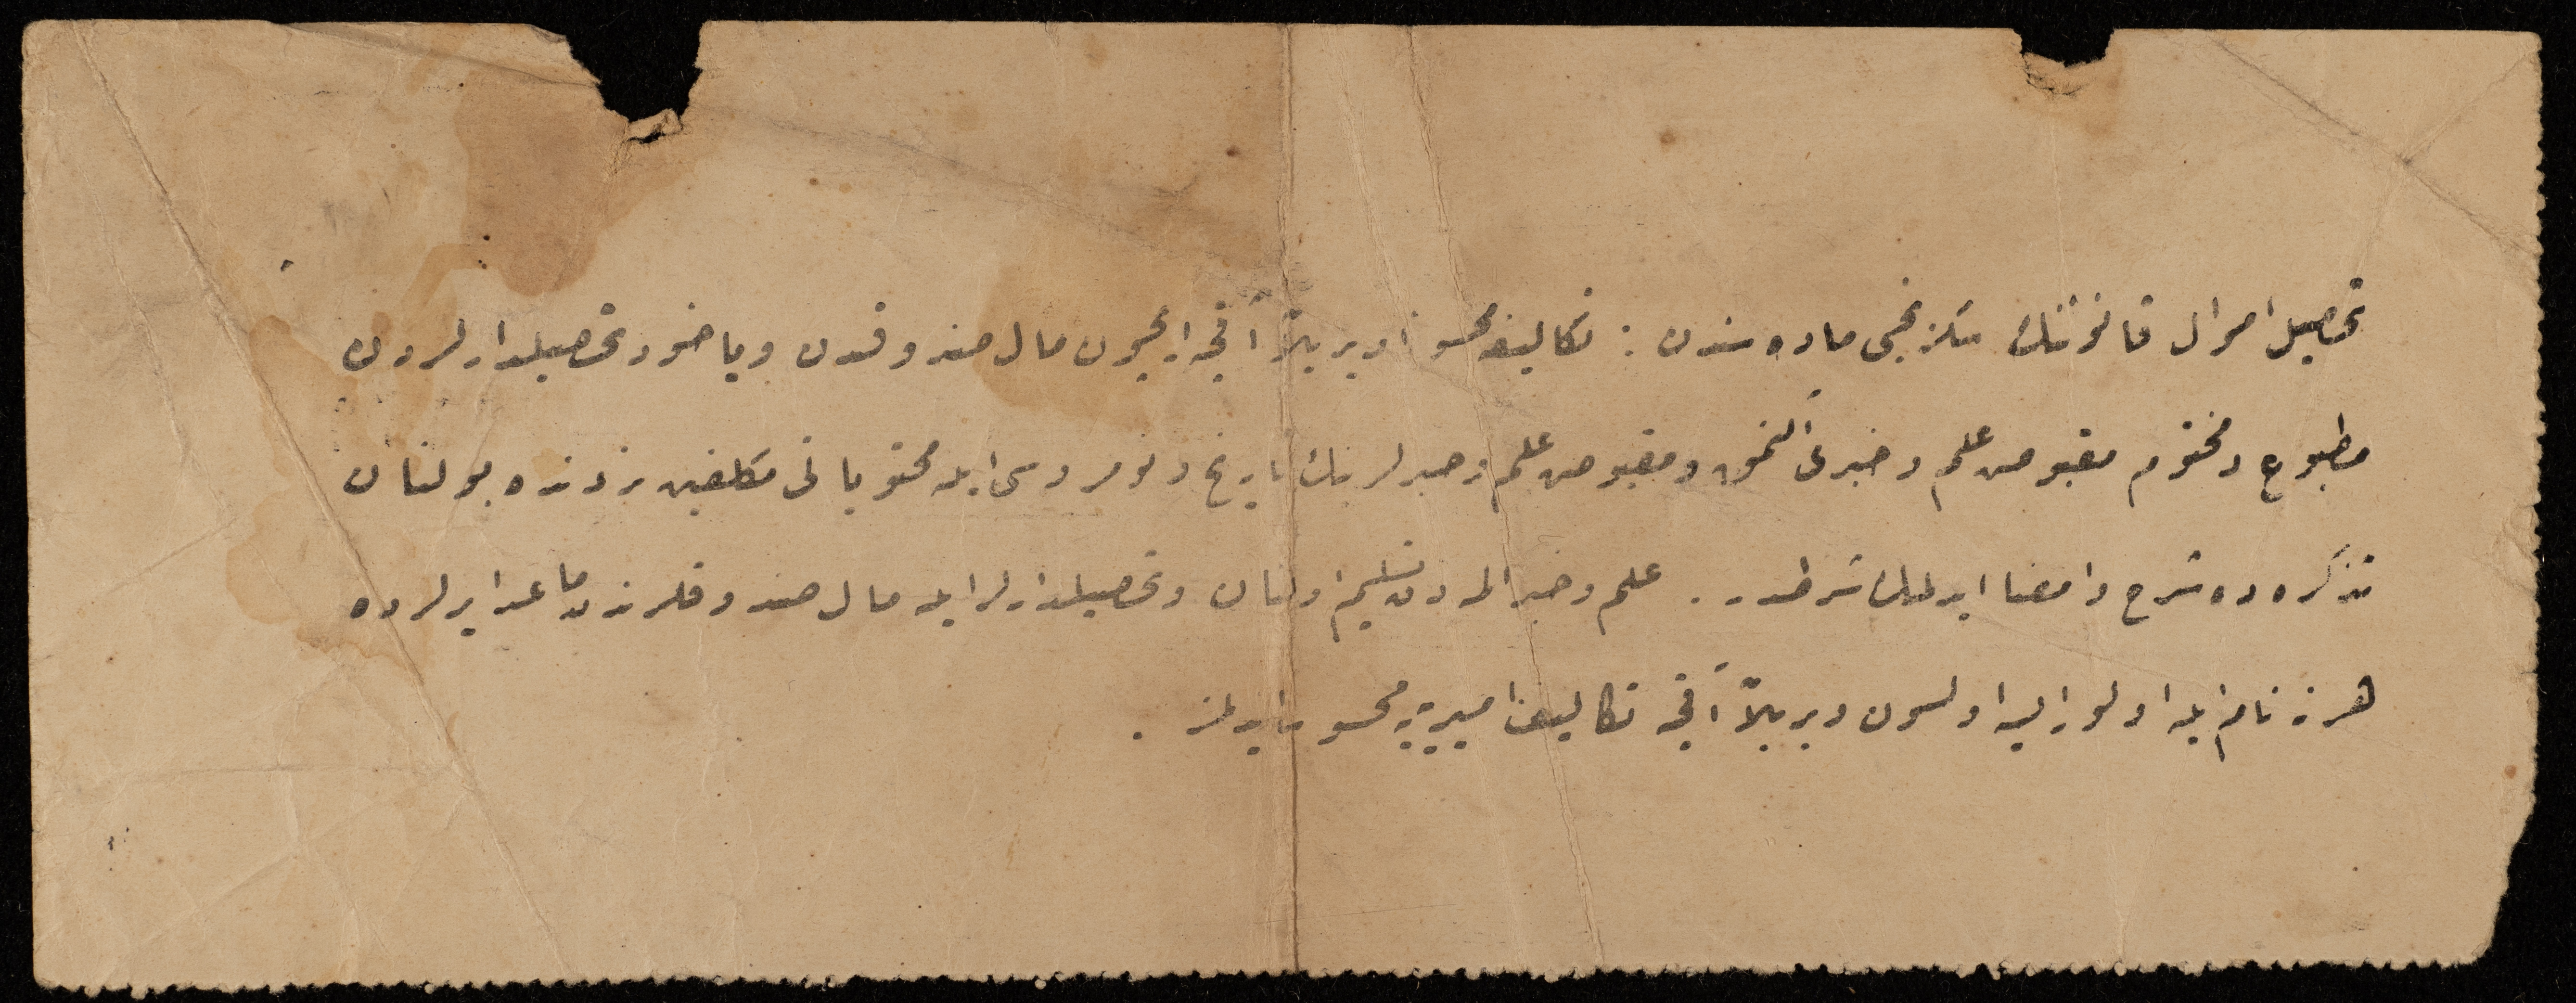 تحصیل اموال قانوننك سكزنجی ماده سندن : تكالیفه محسوباً ویریلان آقچه ایچون مال صندوقندن ویاخود تحصیلدارلردن
مطبوع ومختوم مقبوض علم وخبری آلنمق ومقبوض علم وخبرلرینك تاریخ ونومروسی ایله محتویاتی مكلفین نزدنده بولنان
تذكره ده شرح وامضا ایدلمك شرطدر . علم وخبر المه دن تسلیم اولنان وتحصیلدارلر ایله مال صندوقلرندن ماعدا یرلرده
هر نه نام ایله اولور ایسه اولسون ویریلان آقچه تكالیف امیریه یه محسوب ایدلمز .